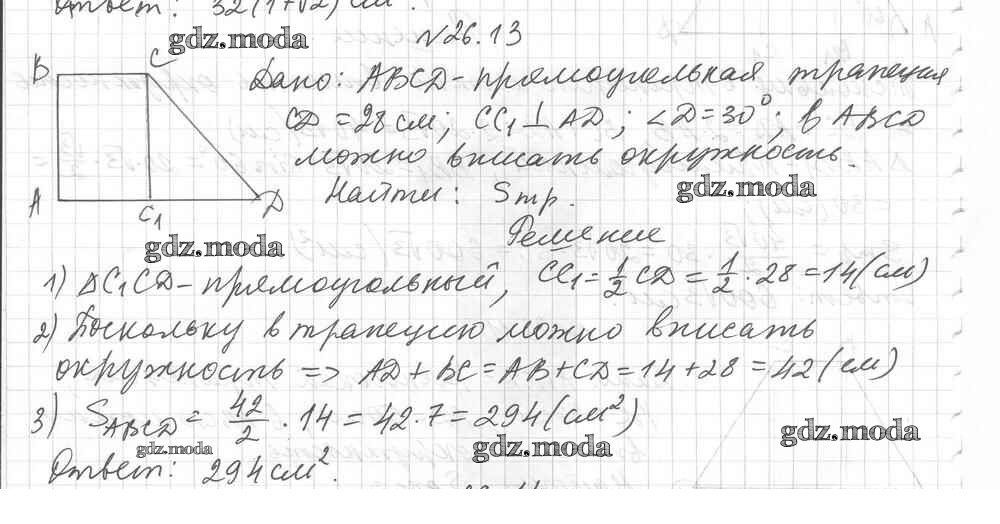 Ответ: 32(1+√2) см².
№26.13
gdz.moda
B C
Дано: ABCD - прямоугольная трапеция
CD = 28 см; CC₁ ⊥ AD; ∠D = 30°; в ABCD
можно вписать окружность.
gdz.moda
Найти: Sтр.
A C₁ D
gdz.moda
Решение
1) ΔC₁CD - прямоугольный, CC₁ = 1/2 CD = 1/2 · 28 = 14 (см)
2) Поскольку в трапецию можно вписать
окружность => AD + BC = AB + CD = 14 + 28 = 42 (см)
3) S_ABCD = 42/2 · 14 = 42 · 7 = 294 (см²)
gdz.moda
gdz.moda
gdz.moda
Ответ: 294 см².